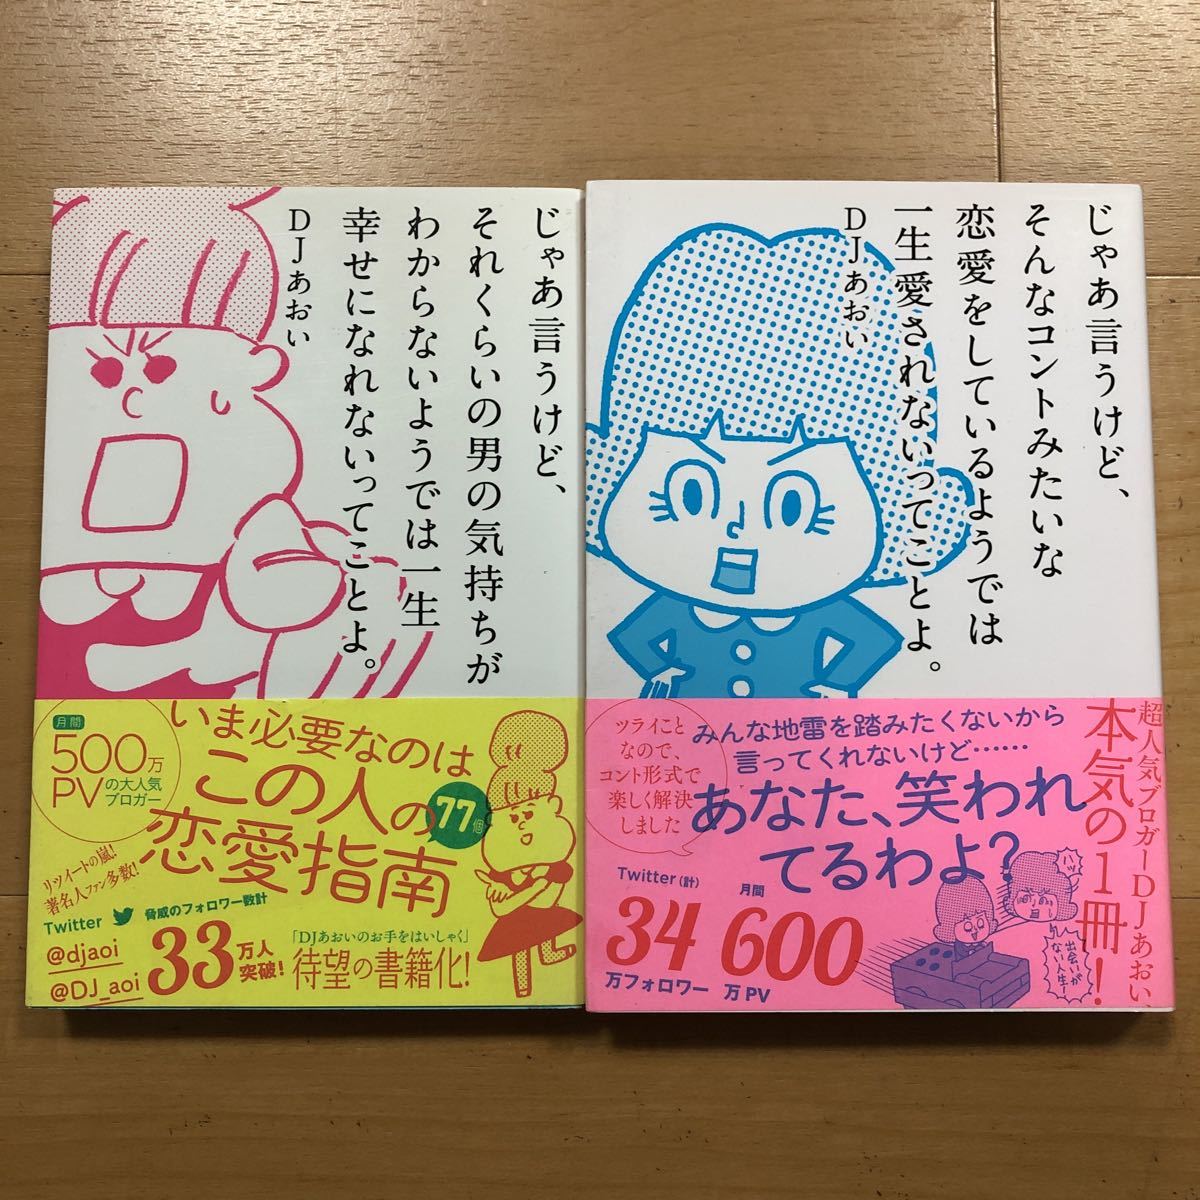 じゃあ言うけど、
それくらいの男の気持ちが
わからないようでは一生
幸せになれないってことよ。
DJあおい
月間
500万
PVの大人気
ブロガー
いま必要なのは
この人の
77個
恋愛指南
リツイートの嵐!
著名人ファン多数!
Twitter
@djaoi
@DJ_aoi
脅威のフォロワー数計
33万人
突破!
「DJあおいのお手をはいしゃく」
待望の書籍化!
じゃあ言うけど、
そんなコントみたいな
恋愛をしているようでは
一生愛されないってことよ。
DJあおい
超人気ブロガーDJあおい、
本気の1冊!
みんな地雷を踏みたくないから
言ってくれないけど……
あなた、笑われ
てるわよ?
ツライこと
なので、
コント形式で
楽しく解決
しました
Twitter(計)
34
万フォロワー
月間
600
万PV
ハッ
出会いが
ない人生!